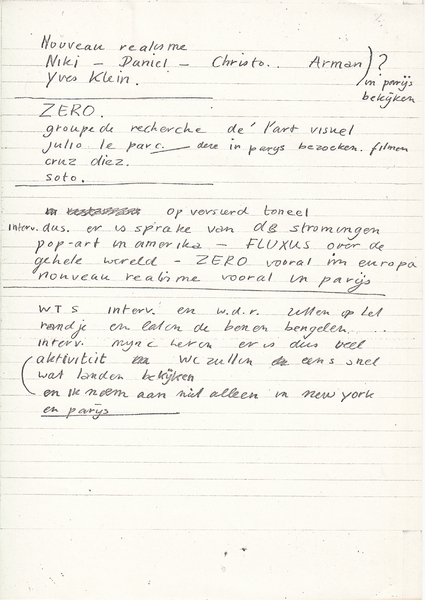 Nouveau realisme
Niki – Daniel – Christo.. Arman ) ?
Yves Klein.
in parijs
bekijken
ZERO.
groupe de recherche de l'art visuel
julio le parc. — deze in parys bezoeken. filmen
cruz diez.
soto.
op versierd toneel
interv. dus. er is sprake van d8 stromingen
pop-art in amerika – FLUXUS over de
gehele wereld – ZERO vooral in europa
nouveau realisme vooral in parijs
WTS interv. en w.d.r. zitten op het
randje en laten de benen bengelen....
interv. mync heren er is dus veel
aktiviteit we zullen eens snel
wat landen bekijken
en ik neem aan niet alleen in new york
en parijs